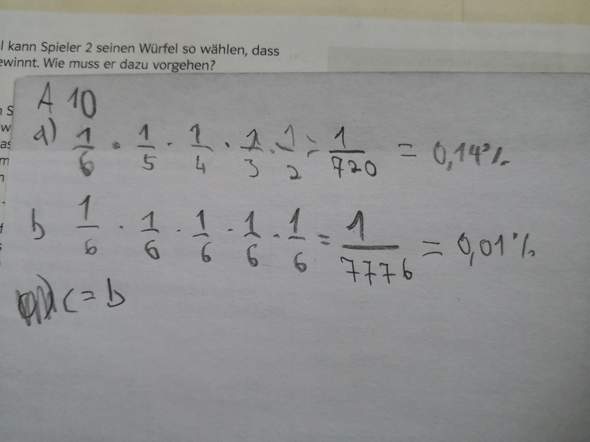 l kann Spieler 2 seinen Würfel so wählen, dass
ewinnt. Wie muss er dazu vorgehen?
A 10
a) 1/6 · 1/5 · 1/4 · 1/3 · 1/2 = 1/720 = 0,14%
b 1/6 · 1/6 · 1/6 · 1/6 · 1/6 = 1/7776 = 0,01%
c = b